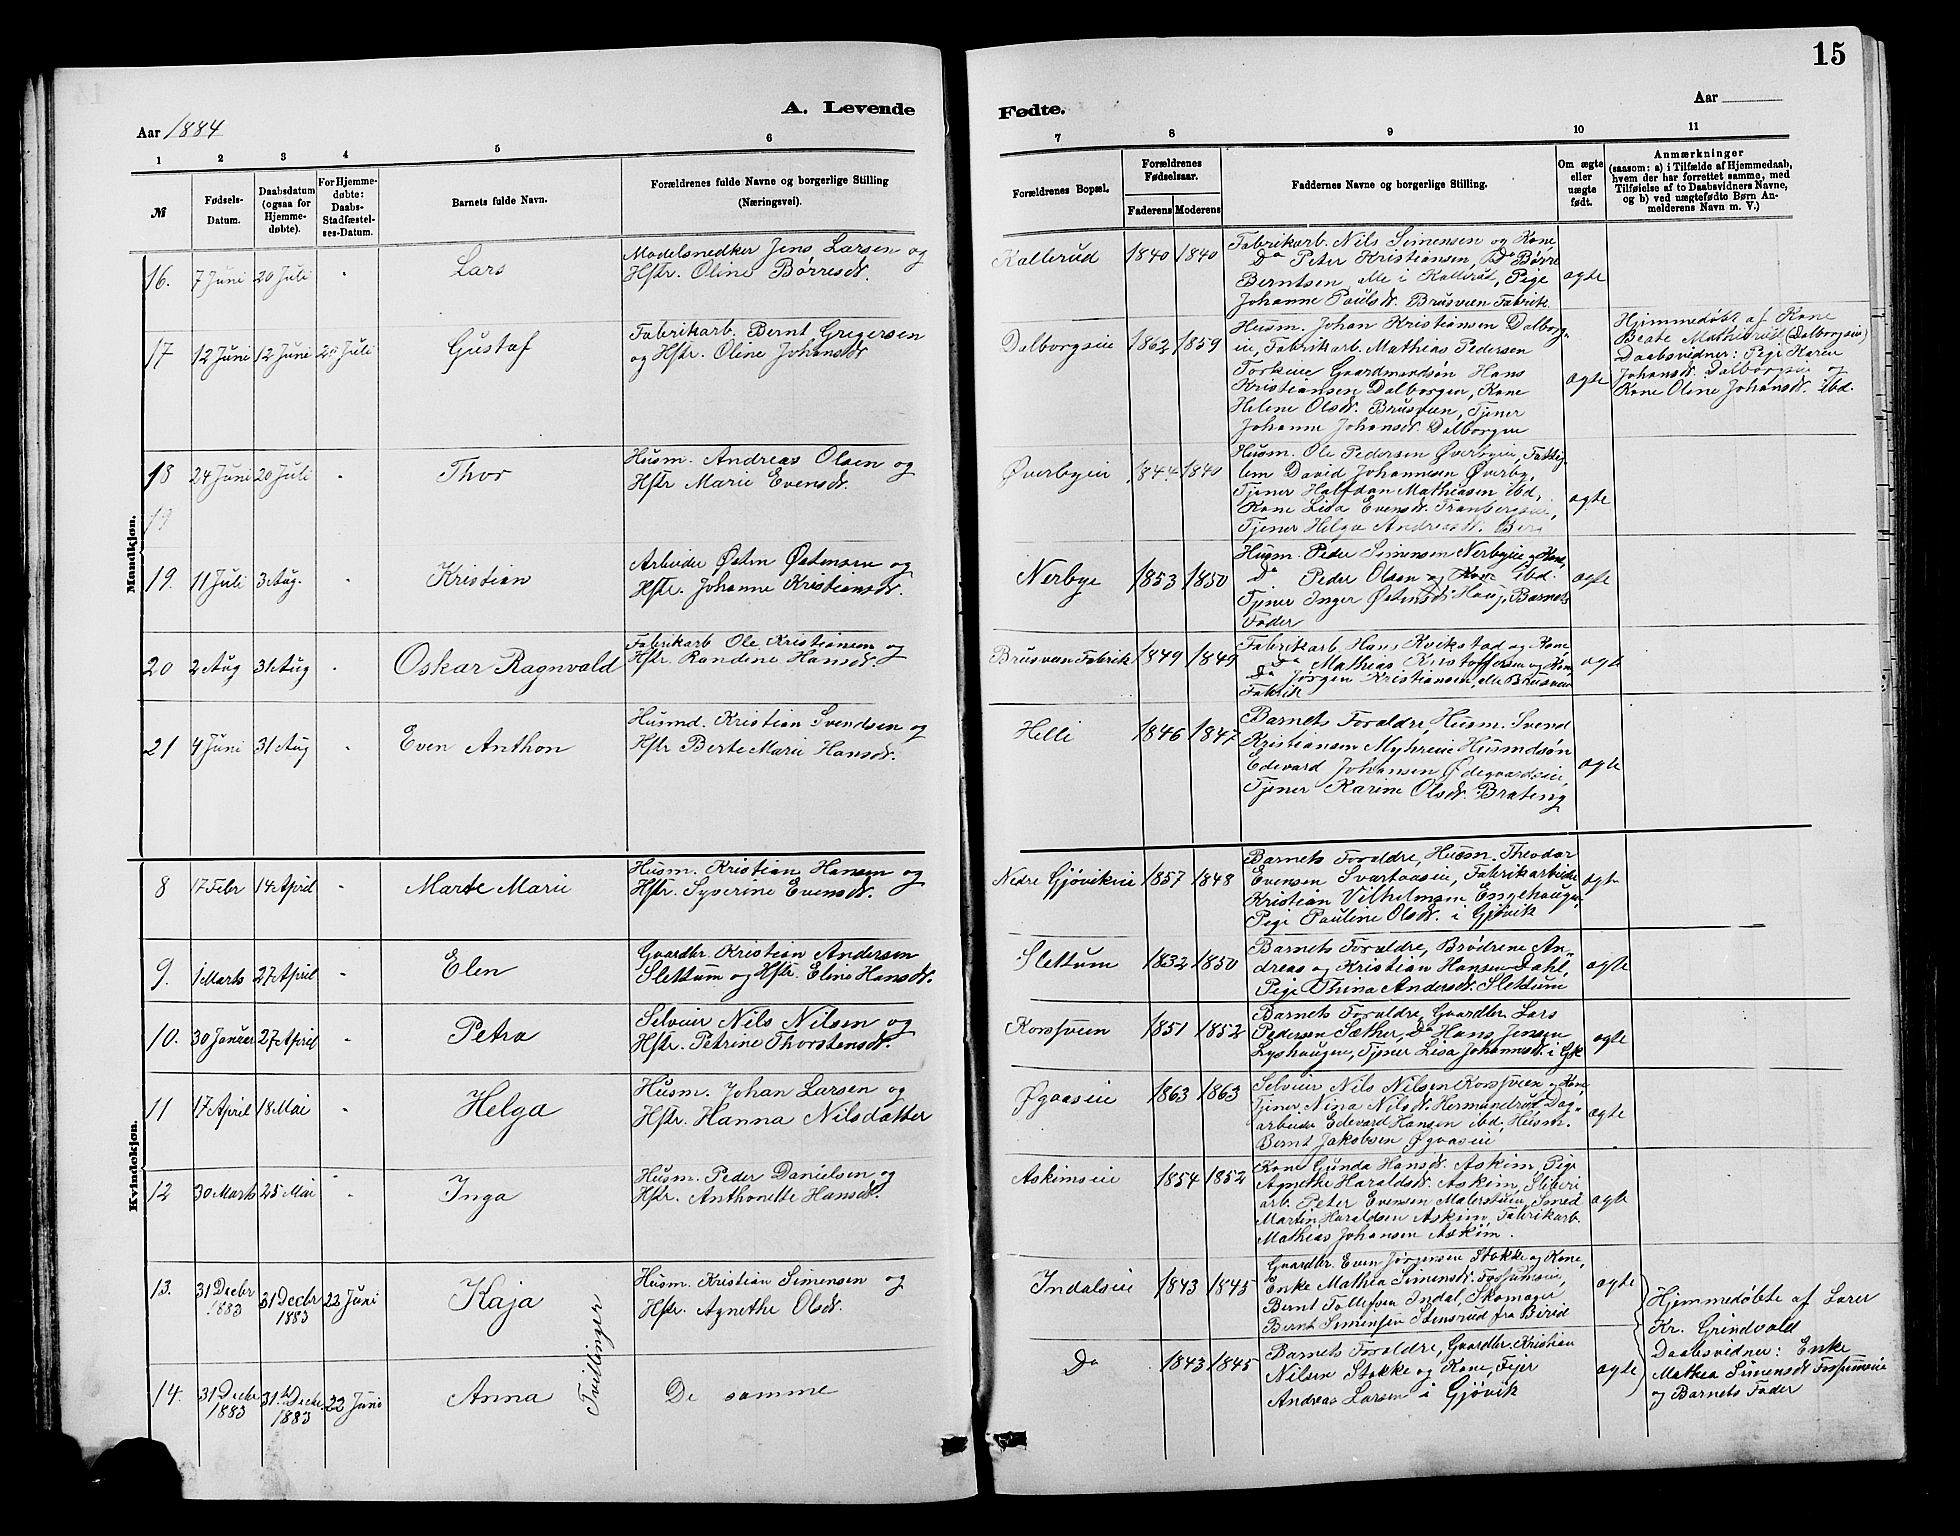 15
A. Levende
Fødte.
Aar 1884
Aar
1 2 3 4 5 6 7 8 9 10 11
№
Fødsels-Datum.
Daabsdatum (ogsaa for Hjemmedøbte).
For Hjemmedøbte: Daabs-Stadfæstelses-Datum.
Barnets fulde Navn.
Forældrenes fulde Navne og borgerlige Stilling
(Næringsvei).
Forældrenes Bopæl.
Forældrenes Fødselsaar.
Faderens Moderens
Faddernes Navne og borgerlige Stilling.
Om ægte eller uægte født.
Anmærkninger
(saasom: a) i Tilfælde af Hjemmedaab,
hvem der har forrettet samme, med
Tilføielse af to Daabsvidners Navne,
og b) ved uægtefødte Børn Anmelderens Navn m. V.)
Mandkjøn.
16. 7 Juni 20 Juli " Lars
Modelsnedker Jens Larsen og
Hstr. Oline Børresdt.
Kallerud 1840 1840
Fabrikarb. Nils Simensen og Kone
Do Peter Kristiansen, Do Børre
Berntsen alle i Kallerud, Pige
Johanne Paulsdt. Brusveen Fabrik.
ægte
17 12 Juni 12 Juni 20 Juli Gustaf
Fabrikarb. Bernt Gregersen
og Hstr. Oline Johansdt
Dalborgseie 1862 1859
Husm. Johan Kristiansen Dalborg-
eie, Fabrikarb. Mathias Pedersen
Gaardmandsøn Hans
Kristiansen Dalborgen, Kone
Helene Olsdt. Brusveen, Tjener
Johanne Johansdt. Dalborgen
ægte
Hjemmedøbt af Kone
Beate Mathidt. (Dalborgseie)
Daabsvidner: Pige Karen
Johansdt. Dalborgseie og
Kone Oline Johansdt. ibd.
18 24 Juni 20 Juli " Thor
Husm. Andreas Olsen og
Hstr Marie Evensdt.
Øverbyeie 1844 1840
Husm. Ole Pedersen Øverbyeie, Fattig-
lem David Johannesen Øverby,
Tjener Halfdan Mathiasen ibd.
Kone Lisa Evensdt. Tranbergseie,
Tjener Helga Andreasdt. Berg
ægte
19
19. 11 Juli 3 Aug. " Kristian
Arbeider Østen Østensen og
Hstr. Johanne Kristiansdt.
Nerbye 1853 1850
Husm. Peder Simensen Nerbyeie og Kone,
Do Peder Olsen og Kone ibd.
Tjener Inger Østensdt. Haug, Barnets
Fader
ægte
20 2 Aug 31 Aug " Oskar Ragnvald
Fabrikarb Ole Kristiansen og
Hstr. Randine Hansdt.
Brusveen Fabrik 1849 1849
Fabrikarb. Hans Kvikstad og Kone,
Do Mathias Kristoffersen og Kone,
Do Jørgen Kristiansen, alle Brusveen
Fabrik
ægte
21 4 Juni 31 Aug " Even Anthon
Husmd. Kristian Svendsen og
Hstr Berte Marie Hansdt.
Helli 1846 1847
Barnets Forældre, Husm. Svend
Kristiansen Myhreie Husmdsøn
Edevard Johansen Ødegaardseie,
Tjener Karine Olsdt. Brateng
ægte
Kvindekjøn.
8 17 Febr 14 April " Marte Marie
Husm. Kristian Hansen og
Hstr. Syverine Evensdt.
Nedre Gjøvikeie 1857 1848
Barnets Forældre, Husm. Theodor
Evensen Svartaaseie, Fabrikarbeider
Kristian Vilhelmsen Engehaugen,
Pige Pauline Olsdt. i Gjøvik
ægte
9. 1 Marts 27 April " Elen
Gaardbr. Kristian Andersen
Slettum og Hstr. Eline Hansdt.
Slettum 1832 1850
Barnets Forældre, Brødrene An-
dreas og Kristian Hansen Dahl,
Pige Thina Andersdt. Slettum
ægte
10. 30 Januar 27 April " Petra
Selveier Nils Nilsen og
Hstr. Petrine Thorstensdt.
Korsveen 1851 1852
Barnets Forældre, Gaardbr. Lars
Pedersen Sæther, Do Hans Jensen
Lyshaugen, Tjener Lisa Johannsdt. i Gjk
ægte
11 17 April 18 Mai " Helga
Husm. Johan Larsen og
Hstr. Hanna Nilsdatter
Øgaaseie 1863 1863
Selveier Nils Nilsen Korsveen og Kone,
Tjener Nina Nilsdt. Hermandrud, Dag-
arbeider Edevard Hansen ibd, Husm.
Bernt Jakobsen Øgaaseie
ægte
12 30 Marts 25 Mai " Inga
Husm. Peder Danielsen og
Hstr. Anthonette Hansdt.
Askimseie 1854 1852
Kone Gunda Hansdt. Askim, Pige
Agnethe Haraldsdt. Askim, Sliberi
arb. Peter Evensen Malerstuen, Smed
Martin Haraldsen Askim, Fabrikarb.
Mathias Johansen Askim.
ægte
13. 31 Decbr 1883 31 Decbr 1883 22 Juni Kaja
Tvillinger
Husm. Kristian Simensen og
Hstr. Agnethe Olsdt.
Indalseie 1843 1845
Gaardbr. Even Jørgensen Stokke og Kone,
Enke Mathea Simensdt. Fossumseie,
Bernt Tollefsen Indal, Skomager
Bernt Simensen Stensrud fra Birid
ægte
Hjemmedøbte af Lærer
Kr. Grindvold
Daabsvidner: Enke
Mathea Simensdt Fossumseie
og Barnets Fader
14. 31 Decbr 1883 31 Decbr. 1883 22 Juni Anna
De samme
Do 1843 1845
Barnets Forældre, Gaardbr. Kristian
Nilsen Stokke og Kone, Feier
Andreas Larsen i Gjøvik
ægte